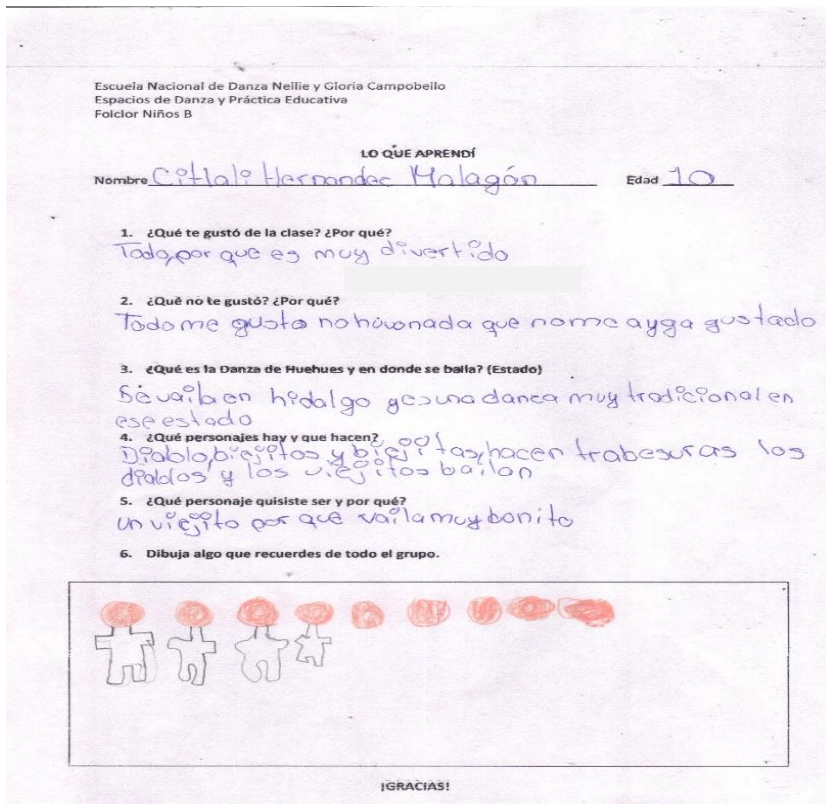 Escuela Nacional de Danza Nellie y Gloria Campobello
Espacios de Danza y Práctica Educativa
Folclor Niños B
LO QUE APRENDÍ
Nombre Citlali Hernandez Malagón Edad 10
1. ¿Qué te gustó de la clase? ¿Por qué?
Todo, por que es muy divertido
2. ¿Qué no te gustó? ¿Por qué?
Todo me gusto no huvo nada que no me ayga gustado
3. ¿Qué es la Danza de Huehues y en donde se baila? (Estado)
Se vaila en hidalgo y es una danca muy tradicional en
ese estado
4. ¿Qué personajes hay y que hacen?
Diablo, biejitos y biejitas, hacen trabesuras los
diablos y los viejitos bailan
5. ¿Qué personaje quisiste ser y por qué?
un viejito por que vaila muy bonito
6. Dibuja algo que recuerdes de todo el grupo.
¡GRACIAS!